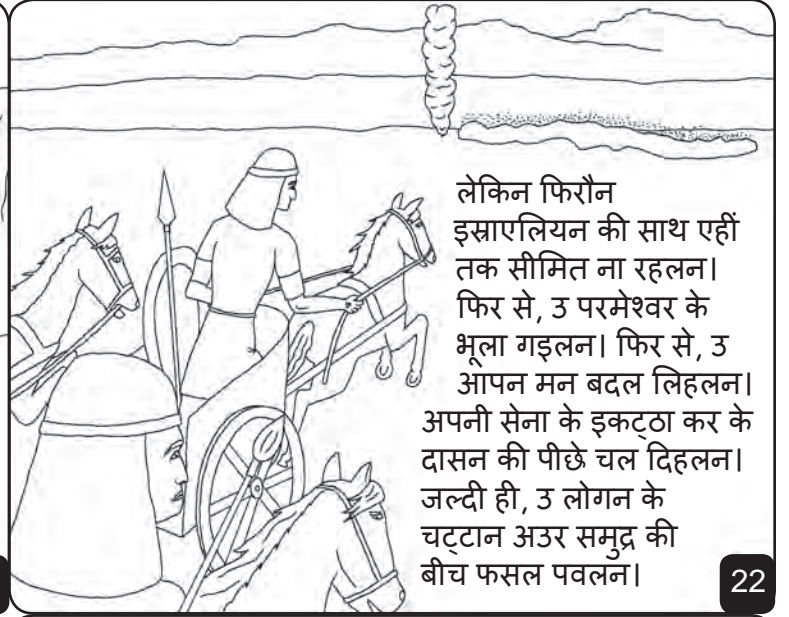 लेकिन फिरौन
इस्राएलियन की साथ एहीं
तक सीमित ना रहलन।
फिर से, उ परमेश्वर के
भूला गइलन। फिर से, उ
आपन मन बदल लिहलन।
अपनी सेना के इकट्ठा कर के
दासन की पीछे चल दिहलन।
जल्दी ही, उ लोगन के
चट्टान अउर समुद्र की
बीच फसल पवलन।
22